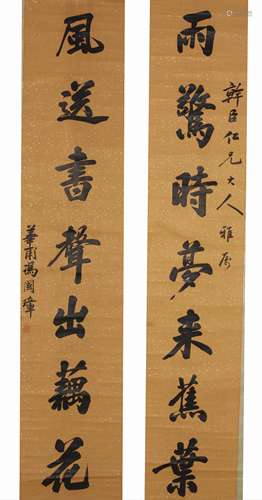 雨驚時夢来蕉葉
幹臣仁兄大人雅屬
風送書聲出藕花
華甫馮國璋